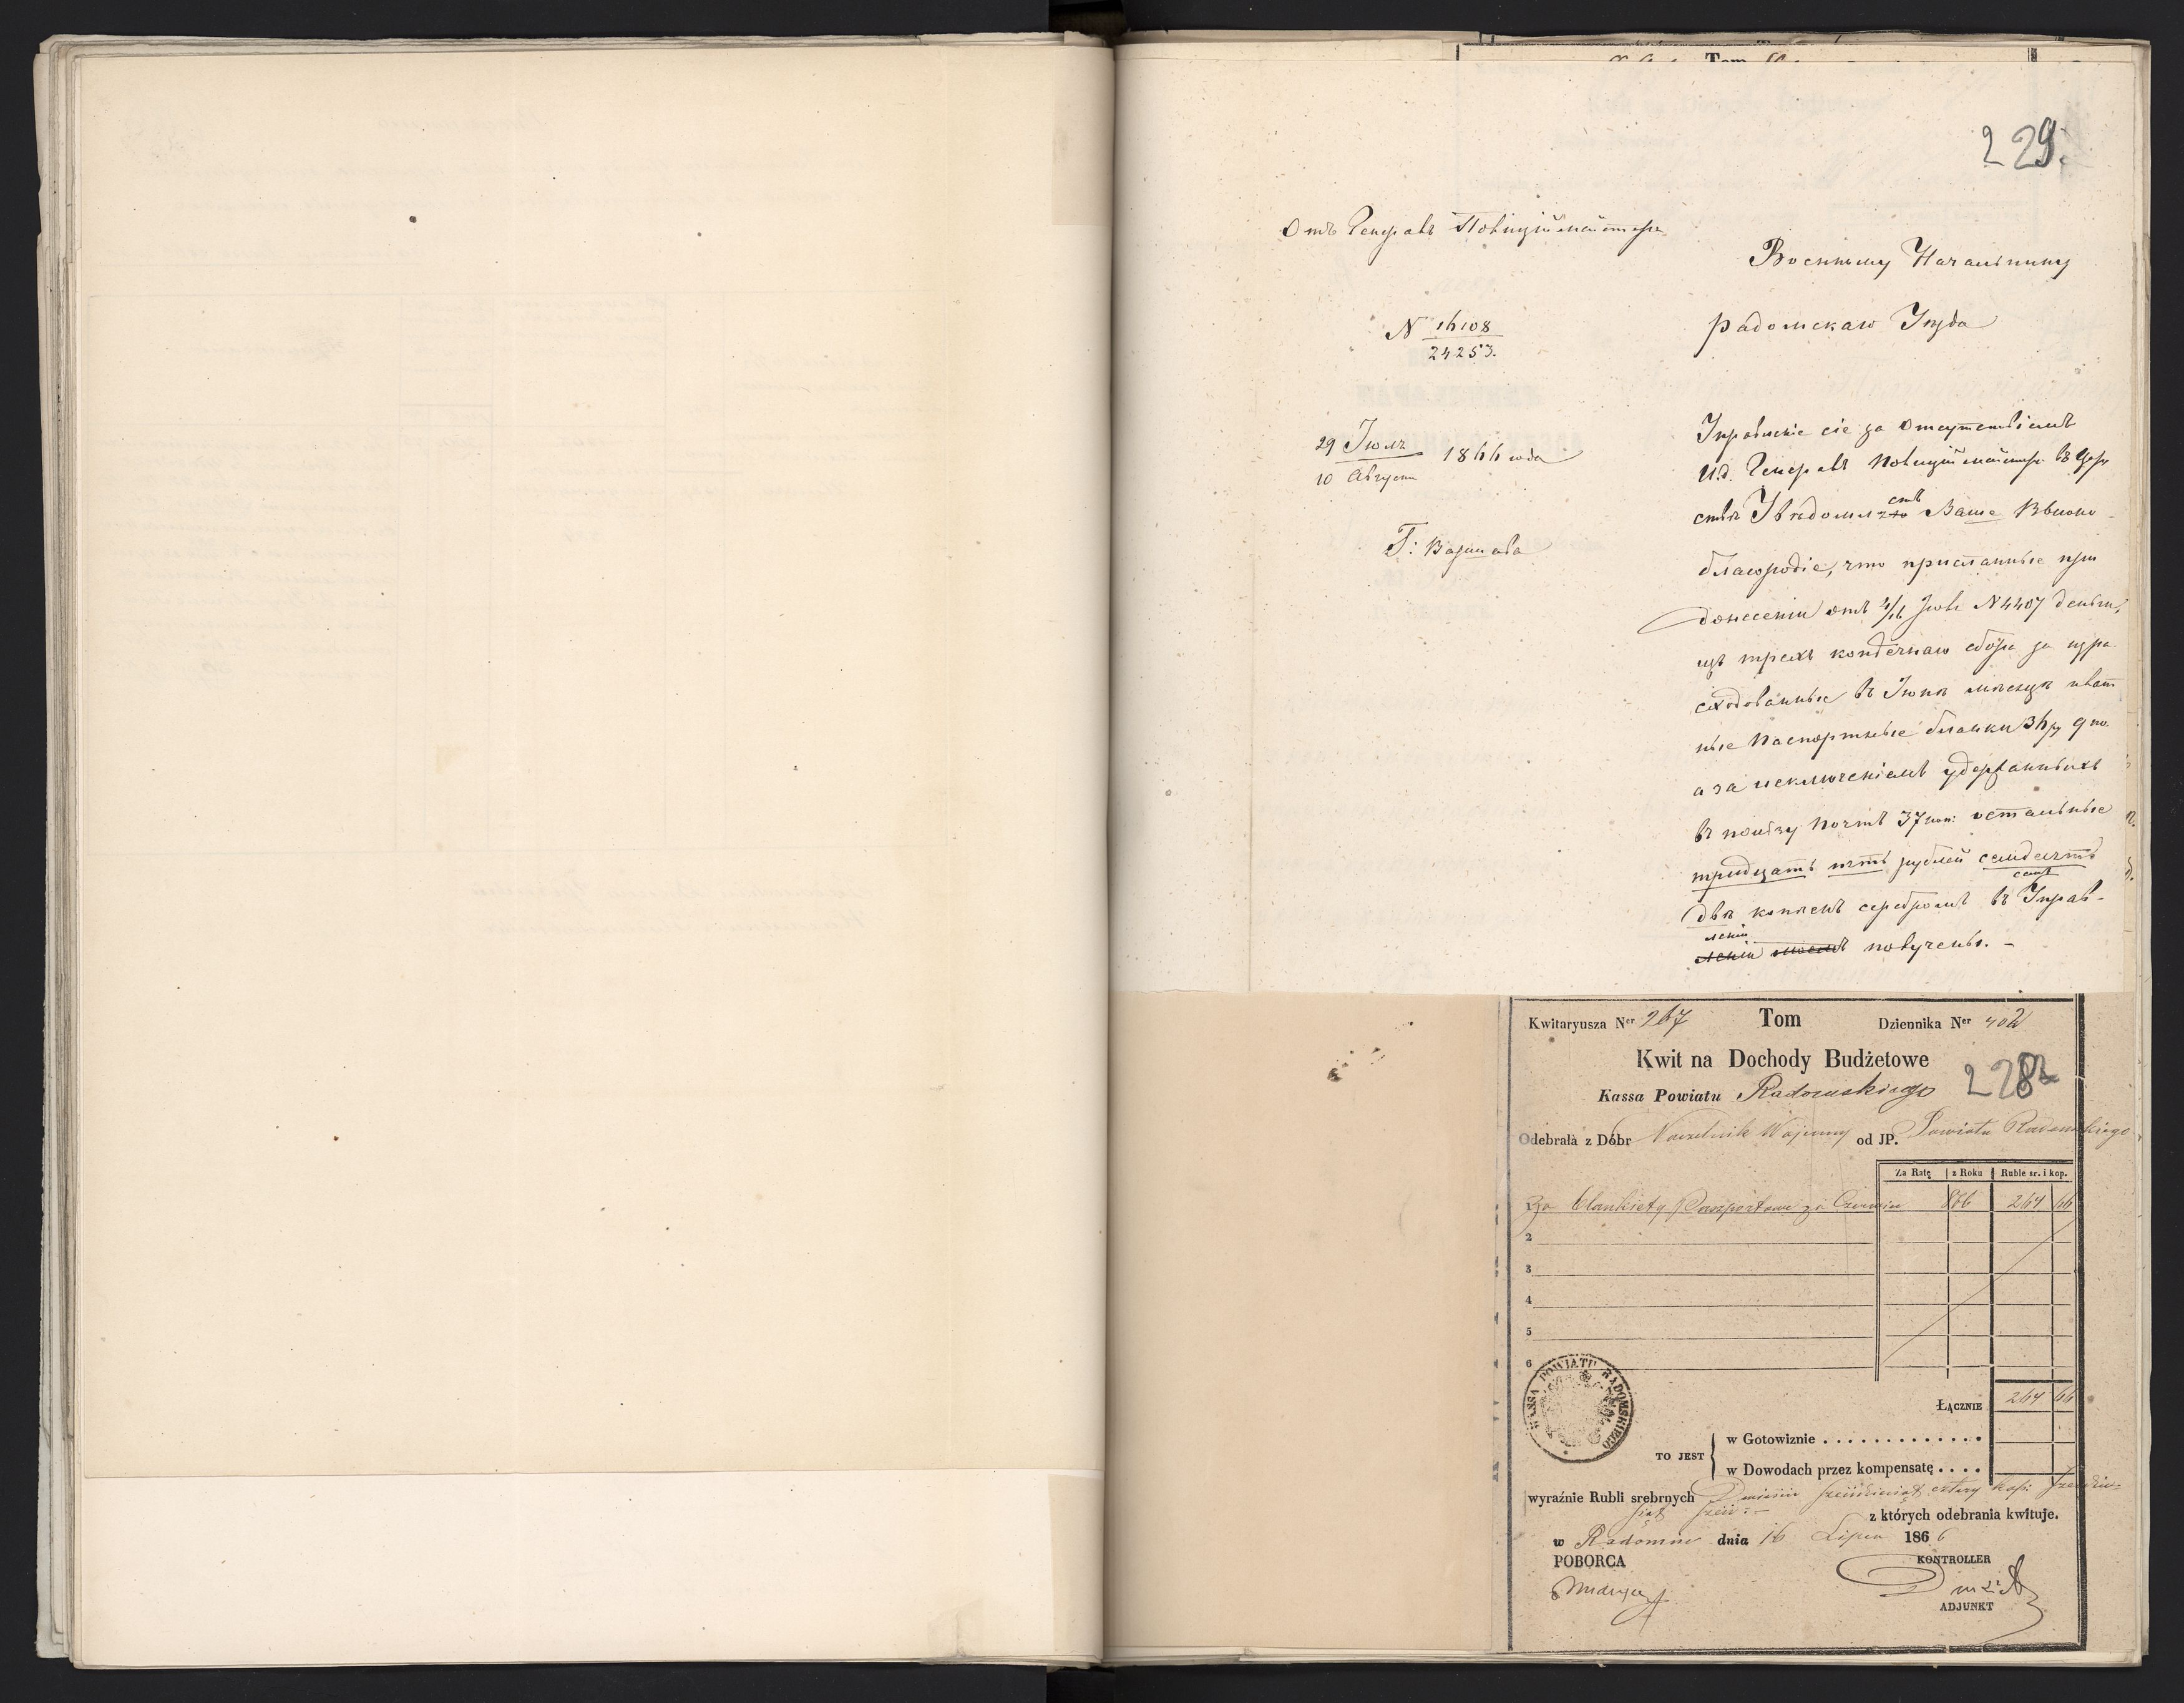 Tom
229.
Отъ Генералъ Полицiймейстера
Военному Начальнику
N 16108
24253.
Радомскаго Уѣзда
29 Iюля
10 Августа 1866 года
Г: Варшава
Управленiе сiе за отсутствiемъ
И.д. Генералъ Полицiймейстера въ Цар
ствѣ Увѣдомляетъ Ваше Высоко-
благородiе, что присланные при
донесенiи отъ 4/16 Iюля N 4407 деньги,
изъ трехъ копѣечнаго сбора за израс
сходованные въ Iюнѣ мѣсяцѣ плат
ные Паспортные бланки 36 р 9 ко
а за исключенiемъ удержанныхъ
въ пользу Почтъ 37 коп: остальные
тридцать пять рублей семдесятъ
двѣ копѣекъ серебромъ въ Управ-
ленiи
ленiи моемъ получены. -
Kwitaryusza Ner 267 Tom Dziennika Ner 402
Kwit na Dochody Budżetowe
228
Kassa Powiatu Radomskiego
Odebrała z Dóbr Naczelnik Wojenny od JP. Powiatu Radomskiego
Za Ratę z Roku Ruble sr. i kop.
Za blankiety Paszportowe za Czerwiec 866 264 66
2
3
4
5
6
KASSA POWIATU RADOMSKIEGO
ŁĄCZNIE 264 66
TO JEST
w Gotowiznie . . . . . . . . . . . . .
w Dowodach przez kompensatę . . . .
wyraźnie Rubli srebrnych Dwieście sześćdziesiąt cztery kop: sześćdzie-
siąt sześć :-
z których odebrania kwituje.
w Radomiu dnia 16 Lipca 1866
POBORCA KONTROLLER
ADJUNKT